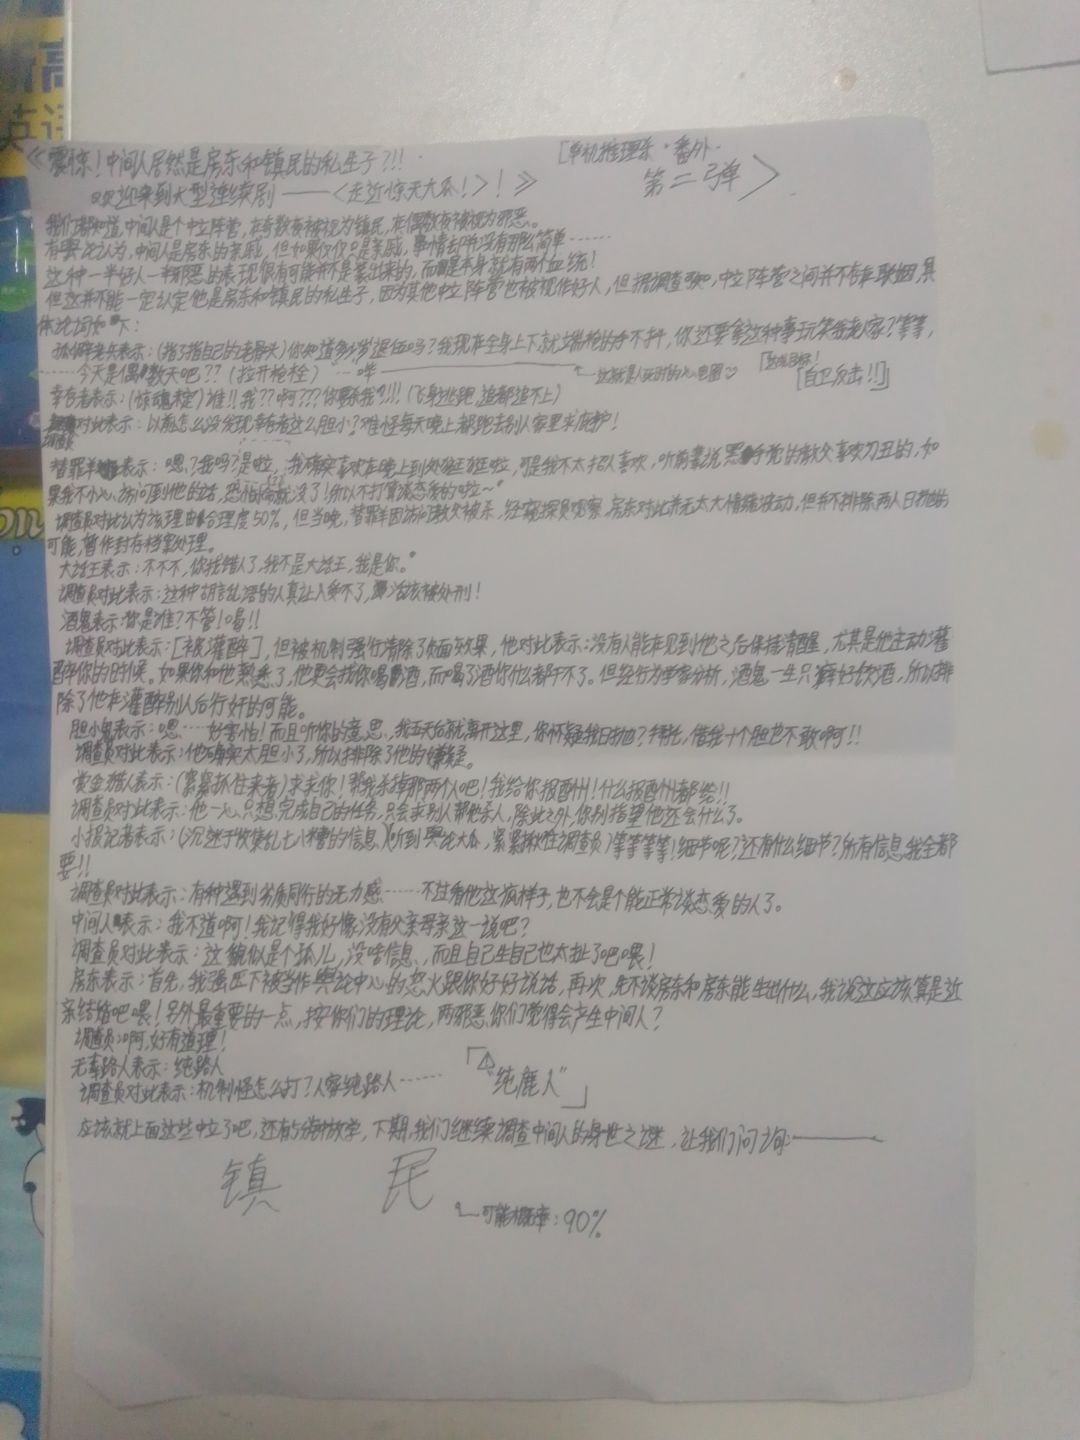 新高
英语
《震惊！中间人居然是房东和镇民的私生子？!!
[单机推理杀·番外·
第二弹〉
欢迎来到大型连续剧——〈走近惊天大瓜！〉！》
我们都知道,中间人是个中立阵营,在奇数夜被视为镇民,在偶数夜被视为邪恶。
有舆论认为,中间人是房东的亲戚,但如果仅仅只是亲戚,事情却没有那么简单……
这种一半好人一半邪恶的表现很有可能并不是装出来的,而是本身就有两个血统！
但这并不能一定认定他是房东和镇民的私生子,因为其他中立阵营也被视作好人,但据调查,中立阵营之间并不存在联姻,具
体证词如下：
老兵表示：(指了指自己的老骨头)你知道多少岁退伍吗？我现在全身上下就端枪的手不抖,你还要拿这种事玩笑我老人家？等等,
……今天是偶数天吧？？(拉开枪栓)…哞
[自卫反击!!]
幸存者表示：(惊魂未定)谁!!我？？啊？？？你要杀我?!!!(飞身逃跑,追都追不上)
调查员对此表示：以前怎么没发现幸存者这么胆小？难怪每天晚上都跑去别人家里求庇护！
替罪羊表示：嗯？我吗？是啦,我确实喜欢在晚上到处逛逛啦,可是我不太招人喜欢,听说黑手党的教父喜欢刀丑的,如
果我不小心访问到他的话,恐怕就没了！所以不打算谈恋爱的啦～
调查员对比认为该理由合理度50%,但当晚,替罪羊因访问教父被杀,经观察,房东对此并无太大情绪波动,但并不排除两人的
可能,暂作封存档案处理。
大话王表示：不不不,你找错人了,我不是大话王,我是你。
调查员对此表示：这种胡言乱语的人真让人受不了,活该被处刑！
酒鬼表示：你是谁？不管！喝!!
调查员对比表示：[被灌醉],但被机制强行清除了负面效果,他对此表示：没有人能在见到他之后保持清醒,尤其是他主动灌
醉你的时候。如果你和他熟悉了,他更会找你喝酒,而喝了酒你什么都干不了。但经行为学家分析,酒鬼一生只癖好饮酒,所以排
除了他在灌醉别人后行奸的可能。
胆小鬼表示：嗯……好害怕！而且听你的意思,我五天后就离开这里,你怀疑我？拜托,借我十个胆也不敢啊!!
调查员对此表示：他确实太胆小了,所以排除了他的嫌疑。
赏金猎人表示：(紧紧抓住来者)求求你！帮我杀掉那两个人吧！我给你报酬！什么报酬都给!!
调查员对此表示：他一心只想完成自己的任务,只会求别人帮他杀人,除此之外,你别指望他还会什么了。
小报记者表示：(沉迷于收集乱七八糟的信息)(听到舆论大瓜,紧紧揪住调查员)等等等等！细节呢？还有什么细节？所有信息我全都
要!!
调查员对此表示：有种遇到劣质同行的无力感……不过看他这疯样子,也不会是个能正常谈恋爱的人了。
中间人表示：我不道啊！我记得我好像没有父亲母亲这一说吧？
调查员对此表示：这貌似是个孤儿,没啥信息,而且自己生自己也太扯了吧喂！
房东表示：首先,我强压下被当作舆论中心的怒火跟你好好说话,再次,先不谈房东和房东能生出什么,我说这应该算是近
亲结婚吧喂！另外最重要的一点,按你们的理论,两邪恶,你们觉得会产生中间人？
调查员：啊,好有道理！
无辜路人表示：纯路人
调查员对此表示：机制怪怎么打？人家纯路人……
「⚠“纯鹿人”」
应该就上面这些中立了吧,下期,我们继续调查中间人的身世之谜,让我们问一问：———
镇 民
可能概率：90%